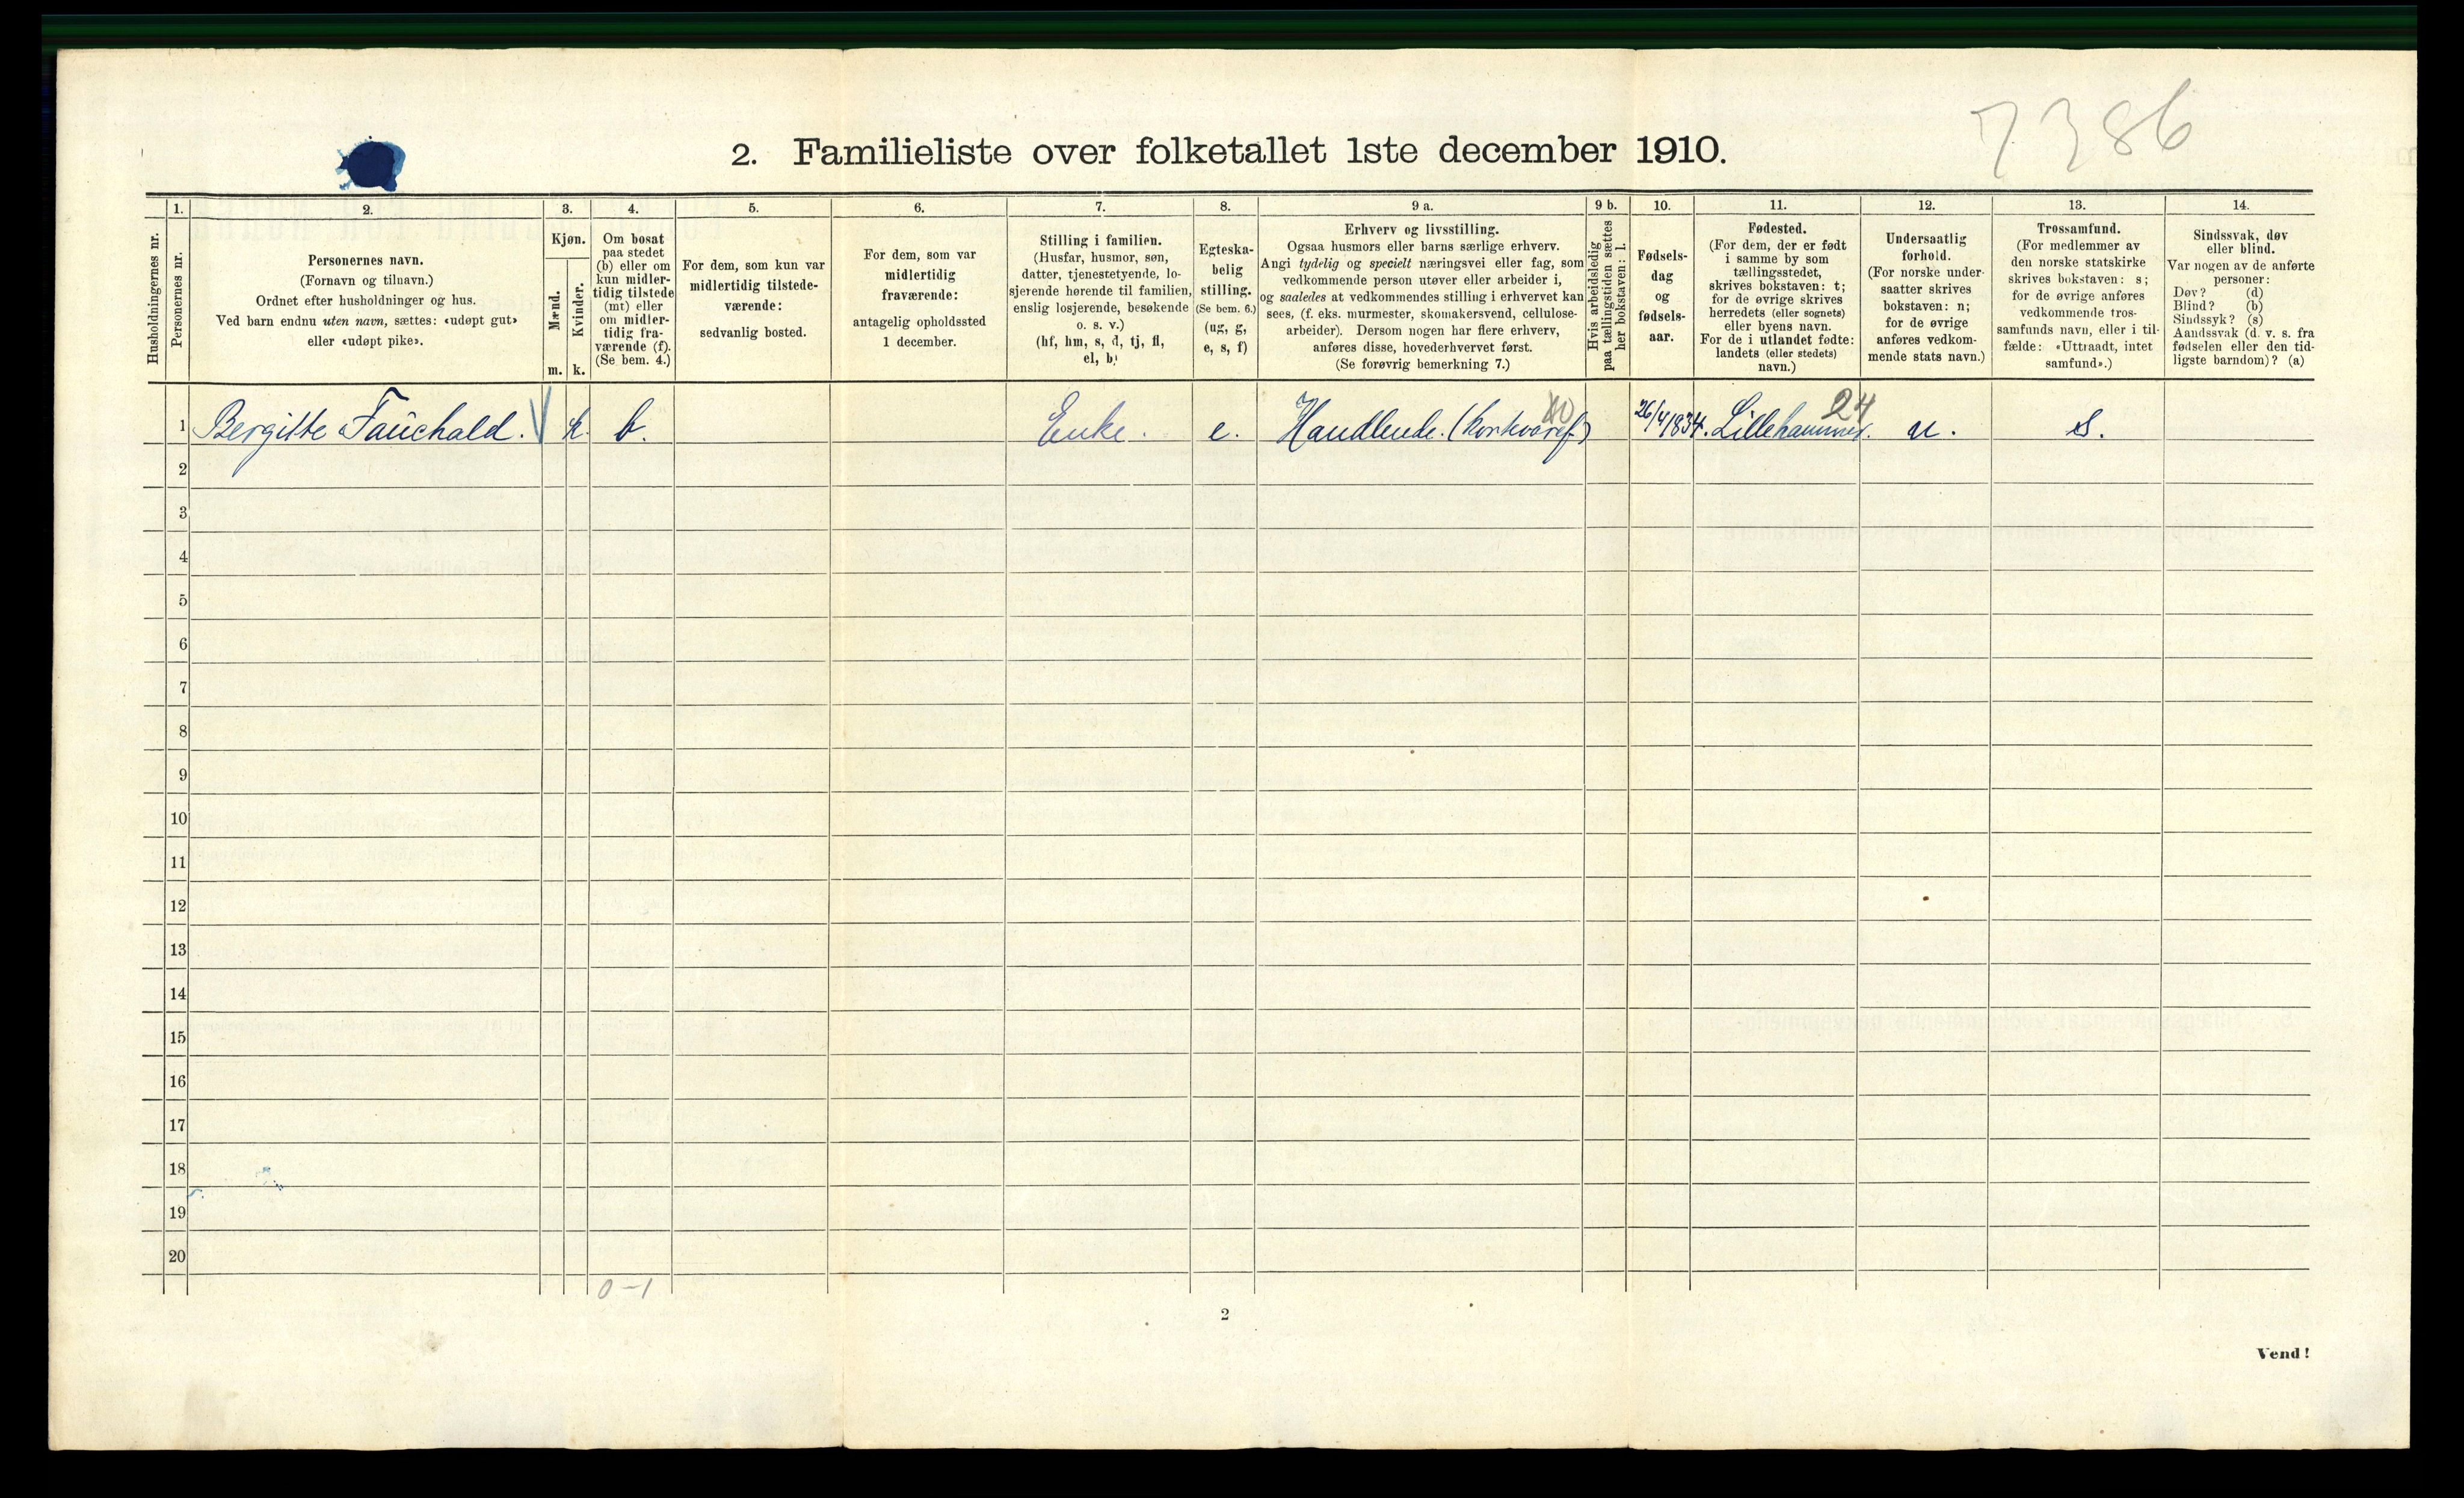 7386
2. Familieliste over folketallet 1ste december 1910.
Husholdningernes nr.
1.
Personernes nr.
2.
Personernes navn.
(Fornavn og tilnavn.)
Ordnet efter husholdninger og hus.
Ved barn endnu uten navn, sættes: «udøpt gut»
eller «udøpt pike».
3.
Kjøn.
Mænd.
Kvinder.
m. k.
4.
Om bosat
paa stedet
(b) eller om
kun midler-
tidig tilstede
(mt) eller
om midler-
tidig fra-
værende (f).
(Se bem. 4.)
5.
For dem, som kun var
midlertidig tilstede-
værende:
sedvanlig bosted.
6.
For dem, som var
midlertidig
fraværende:
antagelig opholdssted
1 december.
7.
Stilling i familien.
(Husfar, husmor, søn,
datter, tjenestetyende, lo-
sjerende hørende til familien,
enslig losjerende, besøkende
o. s. v.)
(hf, hm, s, d, tj, fl,
el, b)
8.
Egteska-
belig
stilling.
(Se bem. 6.)
(ug, g,
e, s, f)
9 a.
Erhverv og livsstilling.
Ogsaa husmors eller barns særlige erhverv.
Angi tydelig og specielt næringsvei eller fag, som
vedkommende person utøver eller arbeider i,
og saaledes at vedkommendes stilling i erhvervet kan
sees, (f. eks. murmester, skomakersvend, cellulose-
arbeider). Dersom nogen har flere erhverv,
anføres disse, hovederhvervet først.
(Se forøvrig bemerkning 7.)
9 b.
Hvis arbeidsledig
paa tællingstiden sættes
her bokstaven: l.
10.
Fødsels-
dag
og
fødsels-
aar.
11.
Fødested.
(For dem, der er født
i samme by som
tællingsstedet,
skrives bokstaven: t;
for de øvrige skrives
herredets (eller sognets)
eller byens navn.
For de i utlandet fødte:
landets (eller stedets)
navn.)
12.
Undersaatlig
forhold.
(For norske under-
saatter skrives
bokstaven: n;
for de øvrige
anføres vedkom-
mende stats navn.)
13.
Trossamfund.
(For medlemmer av
den norske statskirke
skrives bokstaven: s;
for de øvrige anføres
vedkommende tros-
samfunds navn, eller i til-
fælde: «Uttraadt, intet
samfund».)
14.
Sindssvak, døv
eller blind.
Var nogen av de anførte
personer:
Døv? (d)
Blind? (b)
Sindssyk? (s)
Aandssvak (d. v. s. fra
fødselen eller den tid-
ligste barndom)? (a)
1 Bergitte Fauchald. k. b. Enke. e. Handlende. 26/4 1834. Lillehammer. 24 n. s.
2
3
4
5
6
7
8
9
10
11
12
13
14
15
16
17
18
19
20
0-1
2
Vend!